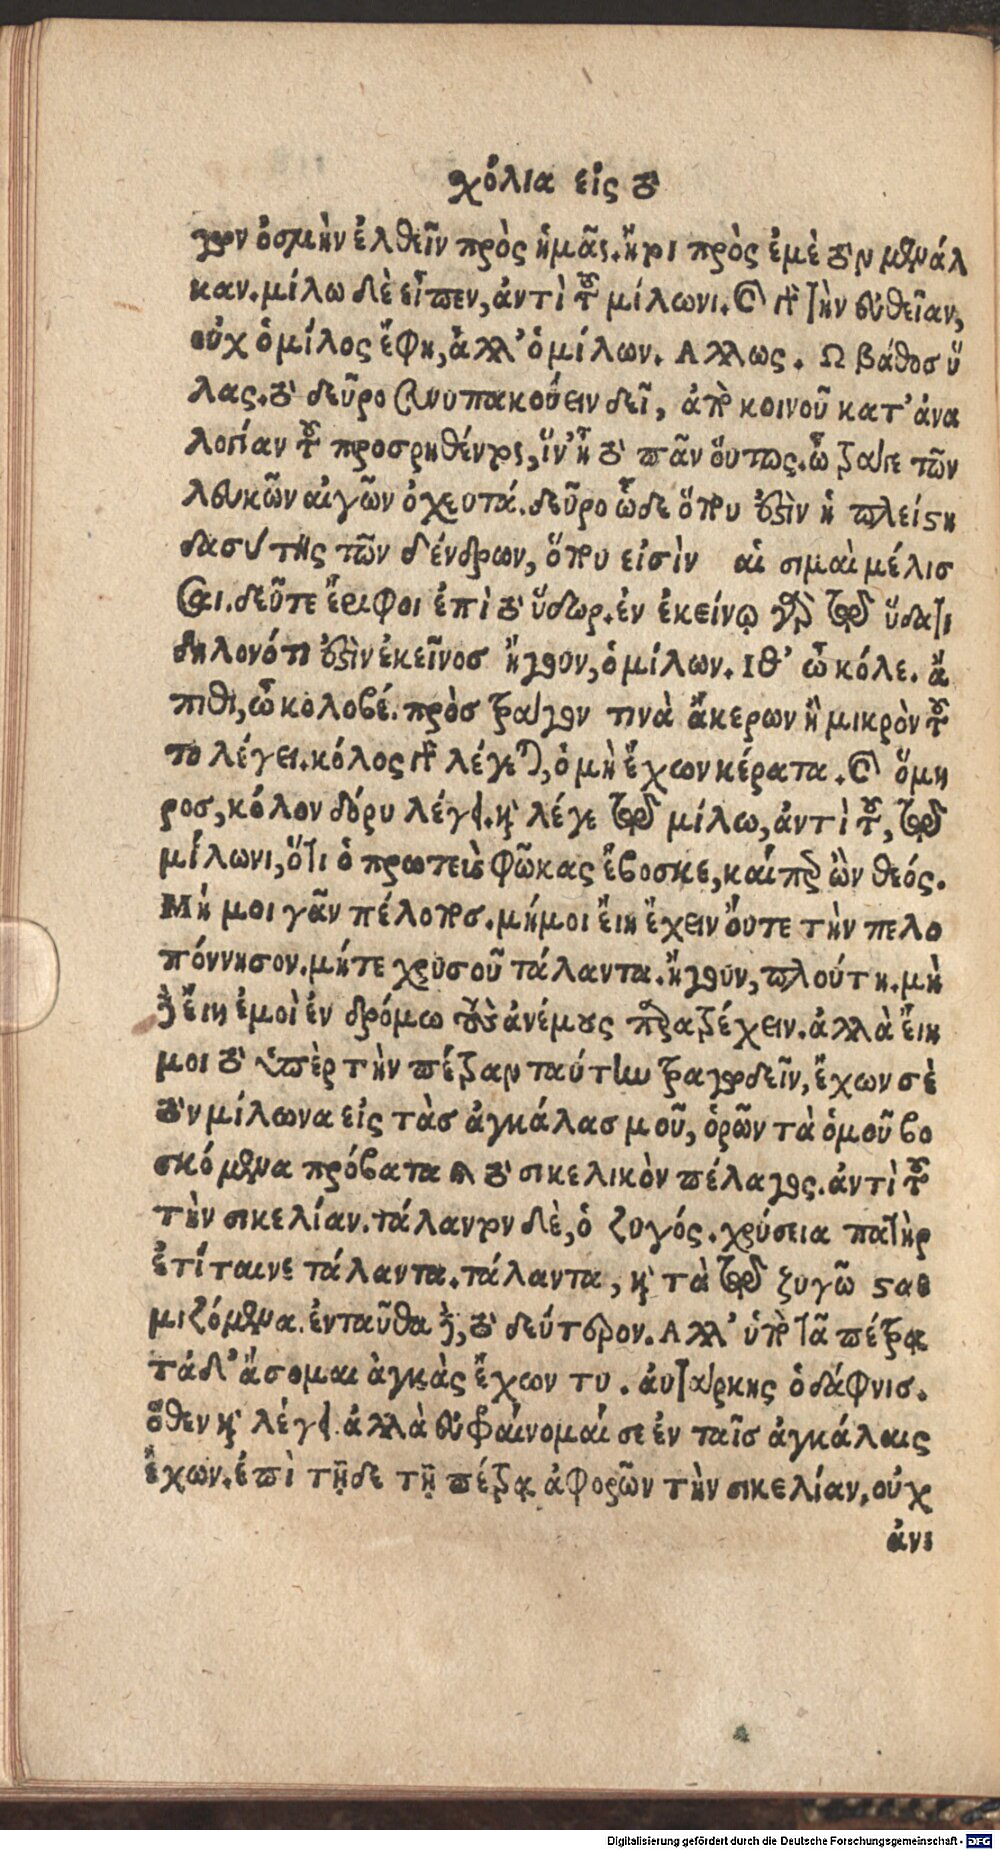 χόλια εἰς τὸ
γων ὀσμὴν ἐλθεῖν πρὸς ἡμᾶς. ἤτοι πρὸς ἐμὲ τὸν μενάλ
καν. μίλω δὲ εἶπεν, ἀντὶ τοῦ μίλωνι. καὶ γὰρ τὴν εὐθεῖαν,
οὐχ ὁ μίλος ἔφη, ἀλλ' ὁ μίλων. Αλλως. Ω βάθοσ ὕ
λας. τὸ δεῦρο συνυπακούειν δεῖ, ἀπὸ κοινοῦ κατ' ἀνα
λογίαν τοῦ προσρηθέντος, ἵν' ᾖ τὸ πᾶν οὕτως. ὦ τράγε τῶν
λευκῶν αἰγῶν ὀχευτά. δεῦρο ὧδε ὅπου ἐστὶν ἡ πλείστη
δασύτης τῶν δένδρων, ὅπου εἰσὶν αἱ σιμαὶ μέλισ
σαι. δεῦτε ἔριφοι ἐπὶ τὸ ὕδωρ. ἐν ἐκείνῳ γὰρ τῷ ὕδατι
δηλονότι ἐστὶν ἐκεῖνοσ ἤγουν, ὁ μίλων. Ιθ' ὦ κόλε. ἄ
πιθι, ὦ κολοβέ. πρὸσ τράγον τινὰ ἄκερων ἢ μικρὸν τοῦ
το λέγει. κόλος γὰρ λέγεται, ὁ μὴ ἔχων κέρατα. καὶ ὅμη
ροσ, κόλον δόρυ λέγει. καὶ λέγε τῷ μίλω, ἀντὶ τοῦ, τῷ
μίλωνι, ὅτι ὁ πρωτεὺς φῶκας ἔβοσκε, καίπερ ὢν θεός.
Μή μοι γᾶν πέλοποσ. μήμοι εἴη ἔχειν οὔτε τὴν πελο
πόννησον. μήτε χρυσοῦ τάλαντα. ἤγουν, πλούτη. μὴ
δὲ εἴη ἐμοὶ ἐν δρόμω τοὺς ἀνέμους παρατρέχειν. ἀλλὰ εἴη
μοι τὸ ὑπὲρ τὴν πέτραν ταύτην τραγωδεῖν, ἔχων σὲ
τὸν μίλωνα εἰς τὰσ ἀγκάλασ μοῦ, ὁρῶν τὰ ὁμοῦ βο
σκόμενα πρόβατα καὶ τὸ σικελικὸν πέλαγος. ἀντὶ τοῦ
τὴν σικελίαν. τάλαντον δὲ, ὁ ζυγός. χρύσεια πατὴρ
ἐτίταινε τάλαντα. τάλαντα, καὶ τὰ τῷ ζυγῶ σταθ
μιζόμενα. ἐνταῦθα δὲ, τὸ δεύτερον. Αλλ' ὑπὸ τᾶ πέτρᾳ
τάδ' ἄσομαι ἀγκὰς ἔχων τυ. αὐτάρκης ὁ δάφνισ.
ὅθεν καὶ λέγει. ἀλλὰ εὐφραίνομαί σε ἐν ταῖσ ἀγκάλαις
ἔχων. ἐπὶ τῇδε τῇ πέτρᾳ ἀφορῶν τὴν σικελίαν, οὐχ
ἁνι
Digitalisierung gefördert durch die Deutsche Forschungsgemeinschaft - DFG